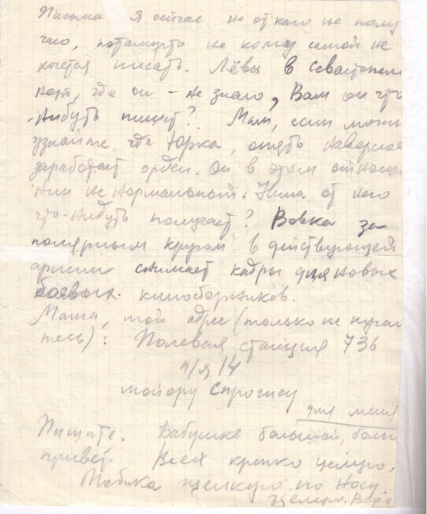 Письма я сейчас не от кого не полу
чаю, потамушто не кому самой не
хочется писать. Лёвы в Севастополе
нет, где он - не знаю, Вам он что
нибуть пишет? Мам, если можно
узнайте где Юрка, опять наверное
заработает орден. Он в этом отноше
нии не нормальный. Нина от него
что-нибуть получает? Вовка за
полярным кругом в действующей
армии снимает кадры для новых
боевых киносборников.
Мама, мой адрес (только не пугай
тесь): Полевая станция 736
п/я 14
майору Спрогису
для меня
Пишите. Бабушке большой, боль
привет. Всех крепко целую,
щелкую по носу
Целую. Вера